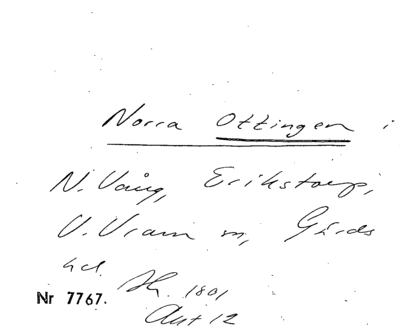 Norra Ottingen i
N. Vång, Erikstorp,
V. Vram m, Gärds
hd.
Nr 7767. Jh. 1801
Akt 12